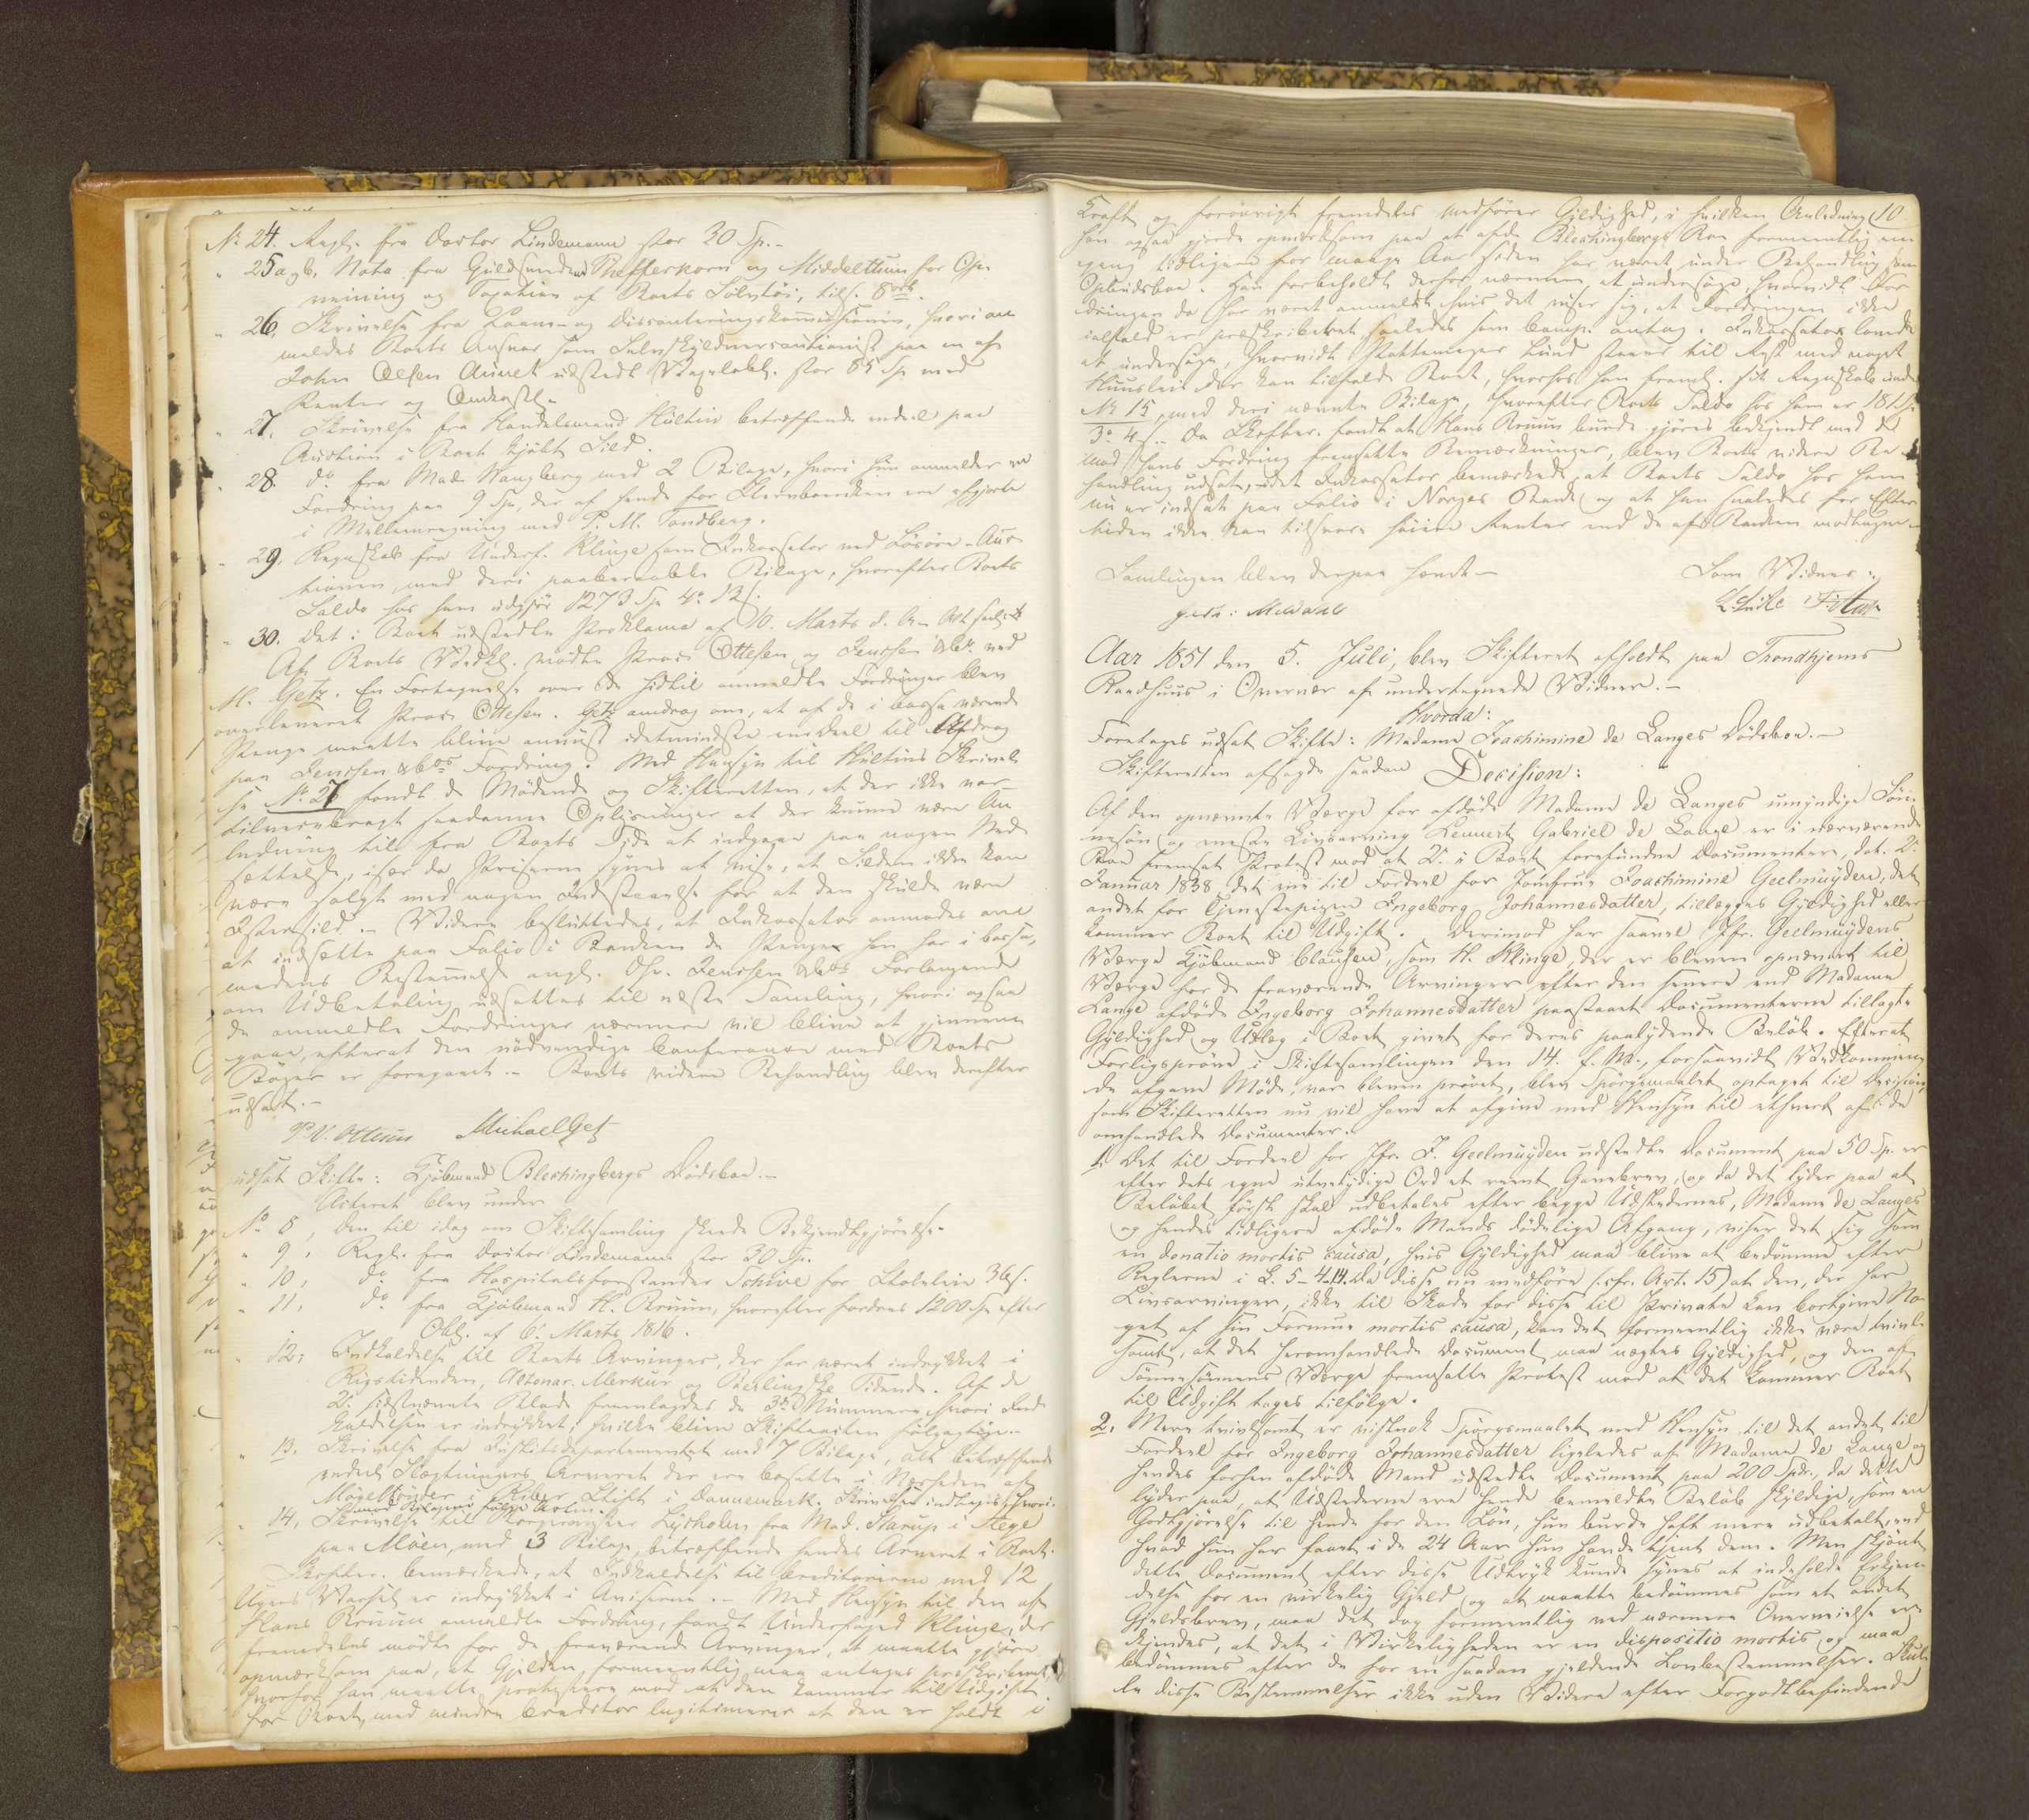 No 24. Regl. fra Doctor Lindemann stor 30 Sp.-
" 25 a og b. Nota fra Guldsmedene Pfefferkorn og Middelthun for Op-
veining og Taxation af Boets Sölvtöi, tils. 8 ort.
" 26, Skrivelse fra Laane- og Disconteringskommissionen, hvori an-
meldes Boets Ansvar som Selvskyldnercautionist paa en af
John Olsen Aunet udstedt Vexelobl. stor 65 Sp med
Renter og Omkostn.
" 27, Skrivelse fra Handelsmand Hultin betræffende endeel paa
Auction i Boet kjöbt Sild.
" 28. do fra Mad. Wangberg med 2 Bilage, hvori hun anmelder en
Fordring paa 9 Sp, der af hende for Steenboenken ere afgjorte
i Mellemregning med P. M. Sandberg.
" 29, Regnskab fra Underf. Klinge som Inkassator ved Lösöre-Auc-
tionen med deri paaberaabte Bilage, hvorefter Boets
Saldo hos ham udgjör 1273 Sp 4 o 12 s.
" 30. Det i Boet udstedte Proklama af 10. Marts d. A.
Af Boets Vedk. mödte Proc. Ottesen og Jenssen & Co. ved
M. Getz. En Fortegnelse over de hidtil anmeldte Fordringer blev
overleveret Proc. Ottesen. Getz androg om, at af de i Cassa værende
Penge maatte blive anviist idetmindste en Deel til Afdrag
paa Jenssen & Cos Fordring. Med Hensyn til Hultins Skrivel-
se No 27 fandt de Mödende og Skifteretten, at der ikke var
tilveiebragt saadanne Oplysninger at der kunde være An-
ledning til fra Boets Side at indgaae paa nogen Ned-
sættelse, især da Priserne synes at vise, at Silden ikke kan
være solgt med nogen Indestaaelse for at den skulde være
Istersild. - Videre besluttedes, at Inkassator anmodes om
at indsætte paa Folio i Banken de Penge han har i Cassa,
medens Bestemmelse angl. Dhr. Jenssen & Cos Forlangende
om Udbetaling udsattes til næste Samling, hvori ogsaa
de anmeldte Fordringer nærmere vil blive at gjennem-
gaae, efterat den nödvendige Conference med Boets
Böger er foregaaet. - Boets videre Behandling blev derefter
udsat. -
P. V. Ottesen Michael Getz
udsat Skifte: Kjöbmand Blechingbergs Dödsboe. -
Acteret blev under
No 8, den til idag om Skiftesamling skeede Bekjendtgjörelse
" 9, Regl. fra Doctor Lindemann stor 30 Sp.
" 10, do fra Hospitalsforstander Schive for Stoleleie 36 s.
" 11, do fra Kjöbmand H. Bruun, hvorefter fordres 1200 Sp efter
Obl. af 6. Marts 1816.
" 12; Indkaldelse til Boets Arvinger, der har været indrykket i
Rigstidenden, Altonaer Merkur og Berlingske Tidende. Af de
2de sidstnævnte Blade fremlagdes de 3de Nummere hvori Ind-
kaldelsen er indrykket, hvilke blive Skifteacten fölgagtige. -
" 13. Skrivelse fra Justitsdepartementet med 7 Bilage, alt betræffende
endeel Slægtninges Arveret der ere bosatte i Nærheden af
Mögeltönder i Ribes Stift i Dannemark. Skrivelsen indtages,
med Bilagene fölge Acten.
" 14. Skrivelse til Lysholm fra Mad. Starup i Stege
paa Möen, med 3 Bilage, betræffende hendes Arveret i Boet.
Skiftes. bemærkede, at Indkaldelse til Creditorerne med 12
Ugers Varsel er indrykket i Aviserne. - Med Hensyn til den af
Hans Bruun anmeldte Fordring, fandt Underfoged Klinge, der
fremdeles mödte for de fraværende Arvinger, at maatte gjöre
opmærksom paa, at Gjelden formeentlig maa antages præskriberet,
hvorfor han maatte protestere mod at den kommer til Udgift
for Boet, med mindre Creditor legitimerer at den er holdt i
Kraft og forövrigt fremdeles medförer Gyldighed, i hvilken Anledning 10.
han ogsaa gjorde opmærksom paa at afd. Blechingbergs Boe formeentlig en-
gang tidligere for mange Aar siden har været under Behandling som
Opbudsboe. Han forbeholdt derfor nærmere at undersöge, hvorvidt For-
dringen da har været anmeldt hvis det viser sig, at Fordringen ikke
ialfald er præskriberet saaledes som Comp. antog. Inkassator lovede
at undersöge, hvorvidt Lund staaer til Rest med noget
Huusleie der kan tilfalde Boet, hvorhos han freml. sit Regnskab under
No 15, med deri nævnte Bilage, hvorefter Boets Saldo hos ham er 181 Sp
3 o 4 s. - Da Skifter. fandt at Hans Bruun burde gjöres bekjendt med de
mod hans Fordring fremsatte Bemærkninger, blev Boets videre Be-
handling udsat, idet Inkassator bemærkede, at Boets Saldo hos ham
nu er indsat paa Folio i Norges Bank og at han saaledes for Efter-
tiden ikke kan tilsvare höiere Renter end de af Banken modtagne.
Samlingen blev derpaa hævet -
Som Vidner:
Aar 1851 den 5. Juli, blev Skifteret afholdt paa Trondhjems
Raadhuus i Overvær af undertegnede Vidner. -
Hvorda:
Foretoges udsat Skifte: Madame Joachimine de Langes Dödsboe. -
Skifteretten afsagde saadan Decision:
Af den opnævnte Værge for afdöde Madame de Langes umyndige Sön-
nesön og eneste Livsarving Lennert Gabriel de Lange er i nærværende
Boe fremsat Protest mod at 2de i Boet forefundne Documenter, dat. 2.
Januar 1838, det ene til Fordeel for Jomfrue Joachimine Geelmuyden, det
andet for Tjenestepigen Ingeborg Johannesdatter, tillægges Gyldighed eller
kommer Boet til Udgift. Derimod har saavel Jfr. Geelmuydens
Værge Kjöbmand Clausen, som H. Klinge, der er bleven opnævnt til
Værge for de fraværende Arvinger efter den senere end Madame
Lange afdöde Ingeborg Johannesdatter paastaaet Documenterne tillagte
Gyldighed og Udlæg i Boet givet for deres paalydende Belöb. Efterat
Forligspröve i Skiftesamlingen den 14. f. M., forsaavidt Vedkommen-
de afgave Möde, var bleven prövet, blev Spörgsmaalet optaget til Decision,
som Skifteretten nu vil have at afgive med Hensyn til ethvert af de
omhandlede Documenter.
1. Det til Fordeel for Jfr. J. Geelmuyden udstedte Document paa 50 Sp. er
efter dets egne utvetydige Ord et reent Gavebrev, og da det lyder paa at
Belöbet förste skal udbetales efter begge Udstedernes, Madame de Langes
og hendes tidligere afdöde Mands dödelige Afgang, viser det sig som
en donatio mortis causa, hvis Gyldighed maa blive at bedömme efter
Reglerne i L. 5-4-14. Da disse nu medföre (cfr. Art. 15) at den, der har
Livsarvinger, ikke til Skade for disse til Private kan bortgive No-
get af sin Formue mortis causa, kan det formeentlig ikke være tvivl-
somt, at det heromhandlede Document maa nægtes Gyldighed, og den af
Sönnesönnens Værge fremsatte Protest mod at det kommer Boet
til Udgift tages tilfölge.
2, Mere tvivlsomt er vistnok Spörgsmaalet med Hensyn til det andet til
Fordeel for Ingeborg Johannesdatter ligeledes af Madame de Lange og
hendes forhen afdöde Mand udstedte Document paa 200 Spdr., da dette
lyder paa, at Udstederne ere hende bemeldte Belöb skyldige, som en
Godtgjörelse til hende for den Lön, hun burde havt mere udbetalt, end
hvad hun har faaet i de 24 Aar hun havde tjent dem. Men skjönt
dette Document efter disse Udtryk kunde synes at indeholde Erkjen-
delse for en virkelig Gjeld og at maatte bedömmes som et andet
Gjeldsbrev, maa det dog formeentlig ved nærmere Overveielse er-
kjendes, at det i Virkeligheden er en dispositio mortis og maa
bedömmes efter de for en saadan gjeldende Lovbestemmelser. Skul-
le disse Bestemmelser ikke uden Videre efter Forgodtbefindende